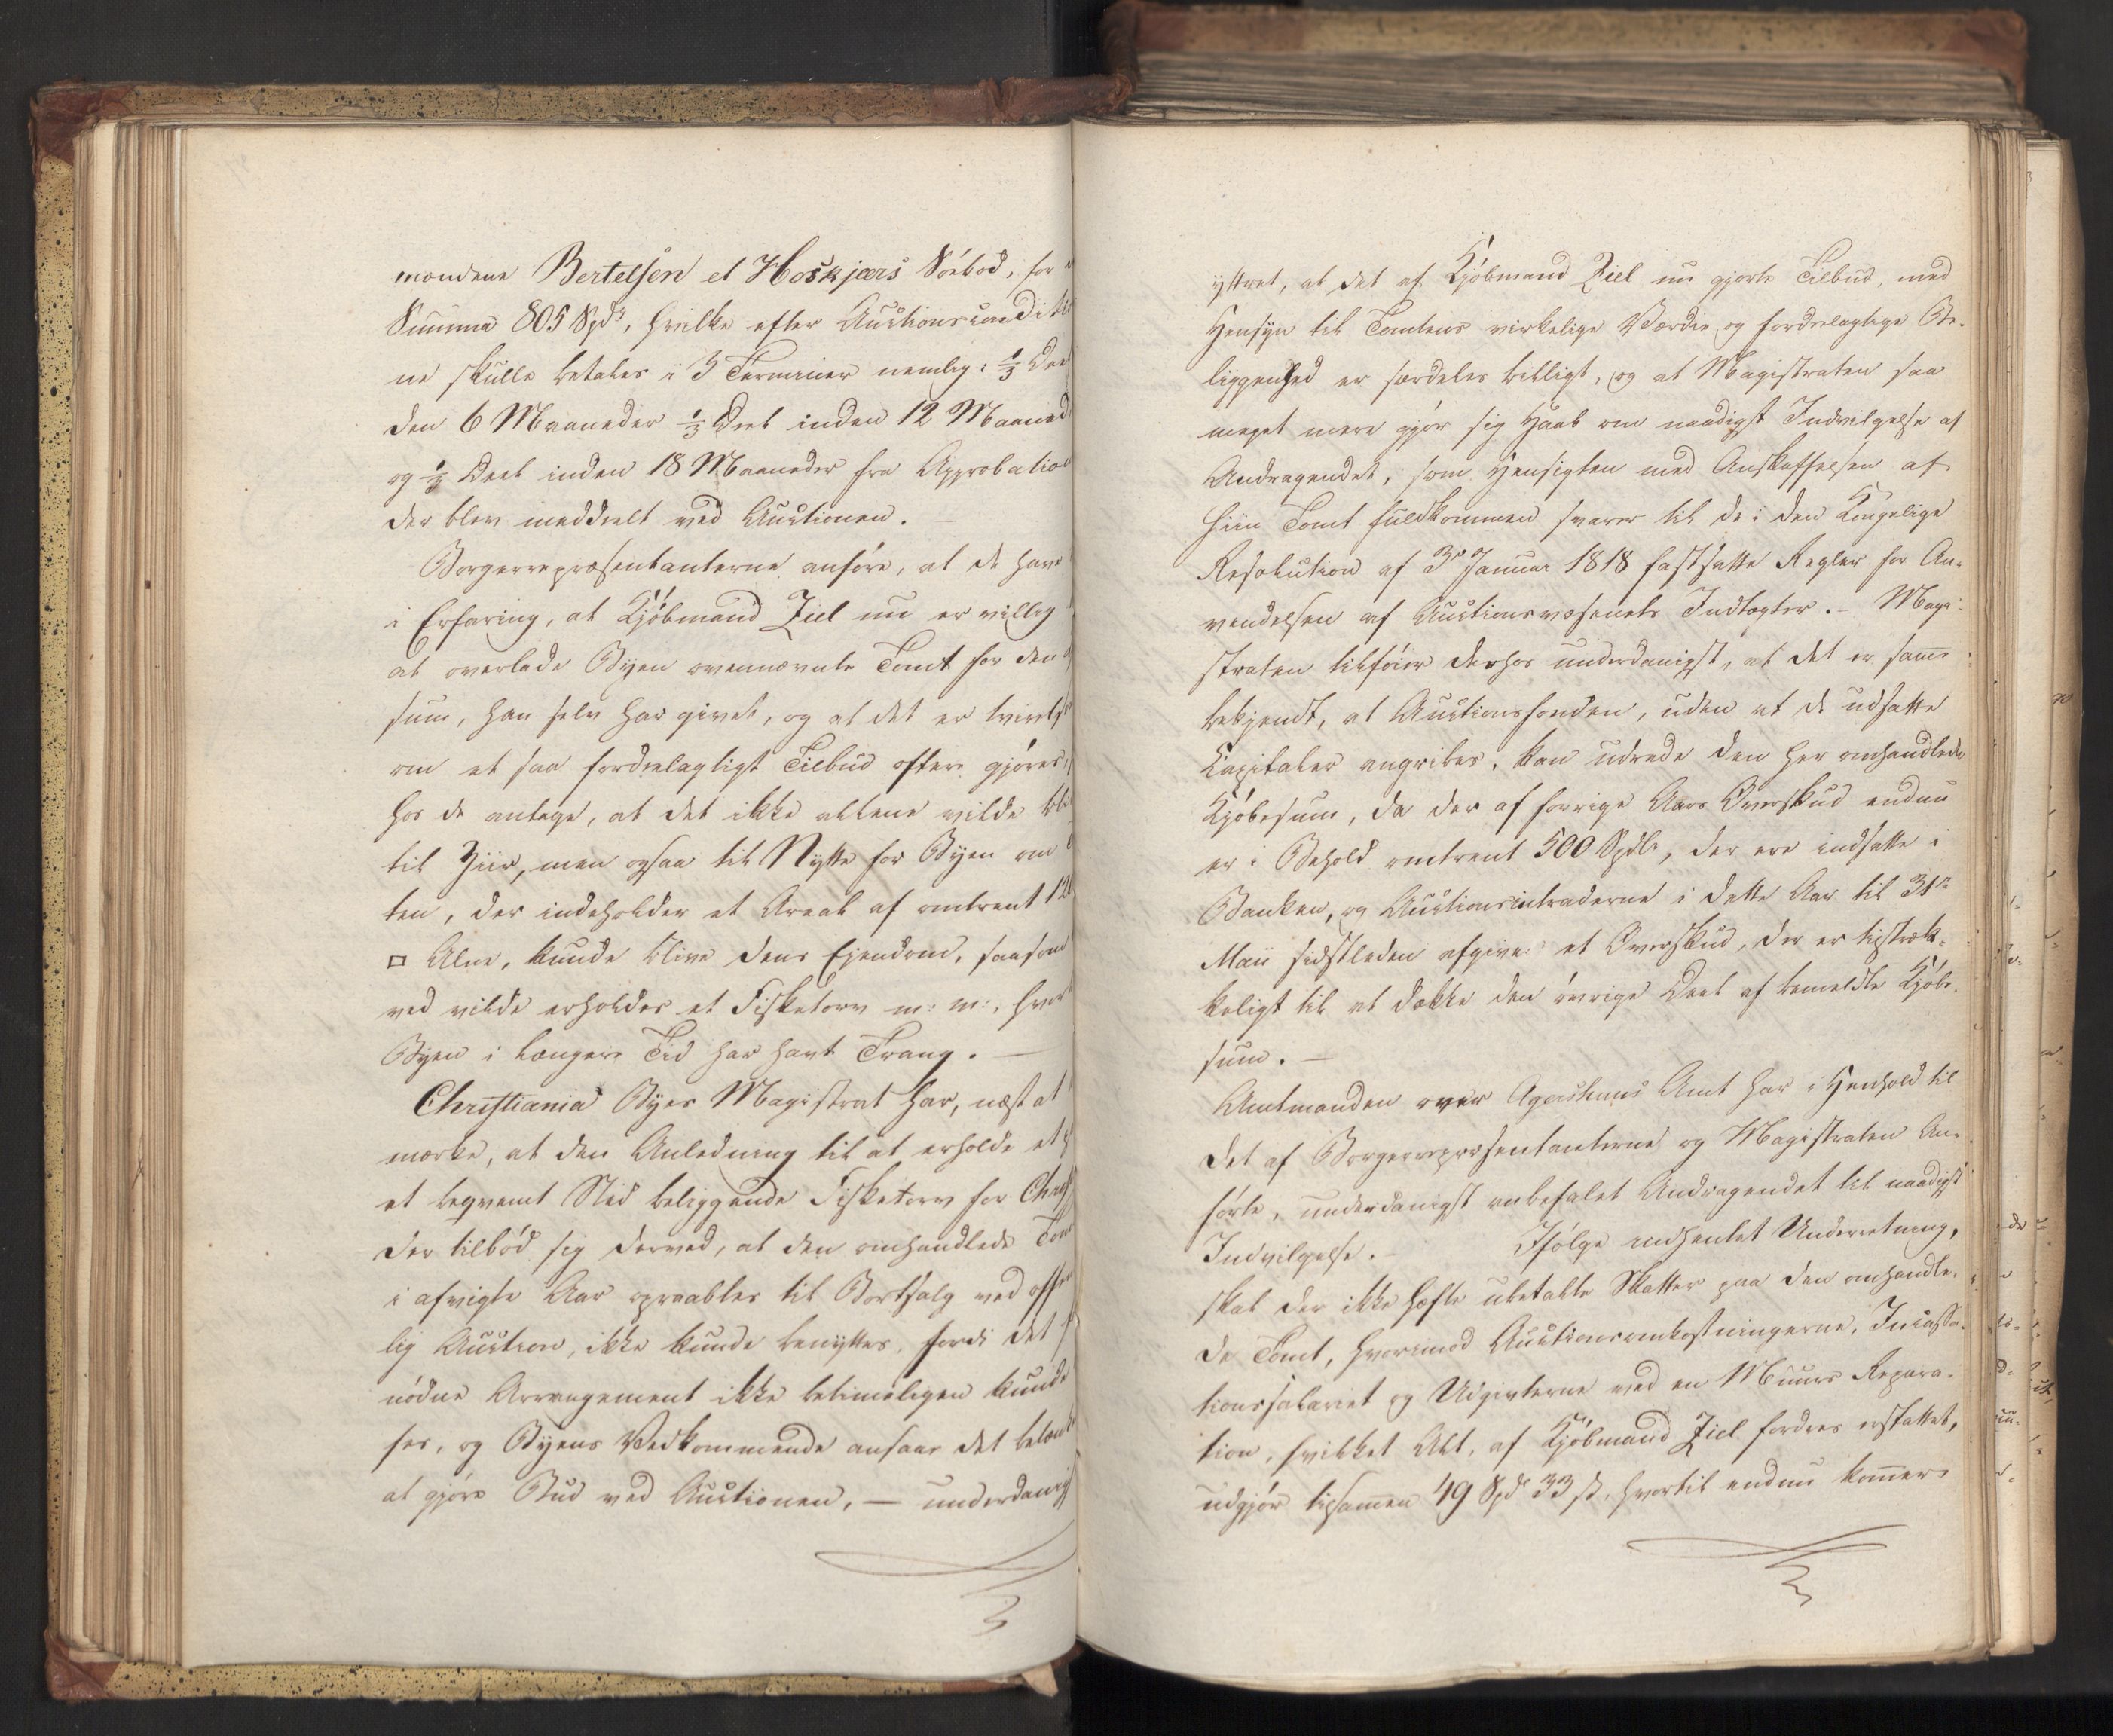 mændene Bertelsen et Hoskjærs Söebod, for
Summa 805 Spdr, hvilke efter Auctionsconditio
ne skulle betales i 3 Terminer nemlig: 1/3 Deel
den 6 Maaneder 1/3 Deel inden 12 Maaned
og 1/3 Deel inden 18 Maaneder fra Approbation
der blev meddeelt ved Auctionen. —
Borgerrepræsentanterne anføre, at de have
i Erfaring, at Kjøbmand Ziel nu er villig
at overlade Byen ovennævnte Tomt for den
sum, han selv har givet, og at det er tvivls
om et saa fordeelagtigt Tilbud oftere gjøres,
hos de antage, at det ikke allene vilde bli
til Ziir, men ogsaa til Nytte for Byen om
ten, der indeholder et Areal af omtrent 12
□ Alne, kunde blive dens Ejendom, saasom
ved vilde erholdes et Fisketorv m: m:, hvor
Byen i længere Tid har havt Trang. —
Christiania Byes Magistrat har, næst at
mærke, at den Anledning til at erholde et
et beqvemt Sted beliggende Fisketorv for Chris
der tilbød sig derved, at den omhandlede Tom
i afvigte Aar opraabtes til Bortsalg ved offen
lig Auction, ikke kunde benyttes, fordi det
nödne Arrangement ikke betimeligen kunde
fes, og Byens Vedkommende ansaae det
at gjøre Bud ved Auctionen, — underdanig
yttret, at det af Kjøbmand Ziel nu gjorte Tilbud, med
Hensyn til Tomtens virkelige Værdie og fordeelagtige Be-
liggenhed er særdeles billigt, og at Magistraten saa
meget mere gjør sig Haab om naadigst Indvilgelse af
Andragendet, som Hensigten med Anskaffelsen af
hiin Tomt fuldkommen svarer til de i den Kongelige
Resolution af 3e Januar 1818 fastsatte Regler for An-
vendelsen af Auctionsvæsenets Indtægter. — Magi-
straten tilføier derhos underdanigst, at det er samme
bekjendt, at Auctionsfonden, uden at de udsatte
Kapitaler angribes, kan udrede den her omhandlede
Kjøbesum, da der af forrige Aars Overskud endnu
er i Behold omtrent 500 Spdlr, der ere indsatte i
Banken, og Auctionsintraderne i dette Aar til 31te
Maii sidstleden afgive et Overskud, der er tilstræk-
keligt til at dække den øvrige Deel af bemeldte Kjøbe-
sum. —
Amtmanden over Agershuus Amt har i Henhold til
det af Borgerrepræsentanterne og Magistraten An-
førte, underdanigst anbefalet Andragendet til naadigst
Indvilgelse. — Ifølge indhentet Underretning,
skal der ikke hæfte ubetalte Skatter paa den omhandle-
de Tomt, hvorimod Auctionsomkostningerne, Incassa-
tionssalariet og Udgivterne ved en Muurs Repara-
tion, hvilket Alt, af Kjøbmand Ziel fordres erstattet,
udgjør tilsammen 49 Spd 33 ß, hvortil endnu kommer